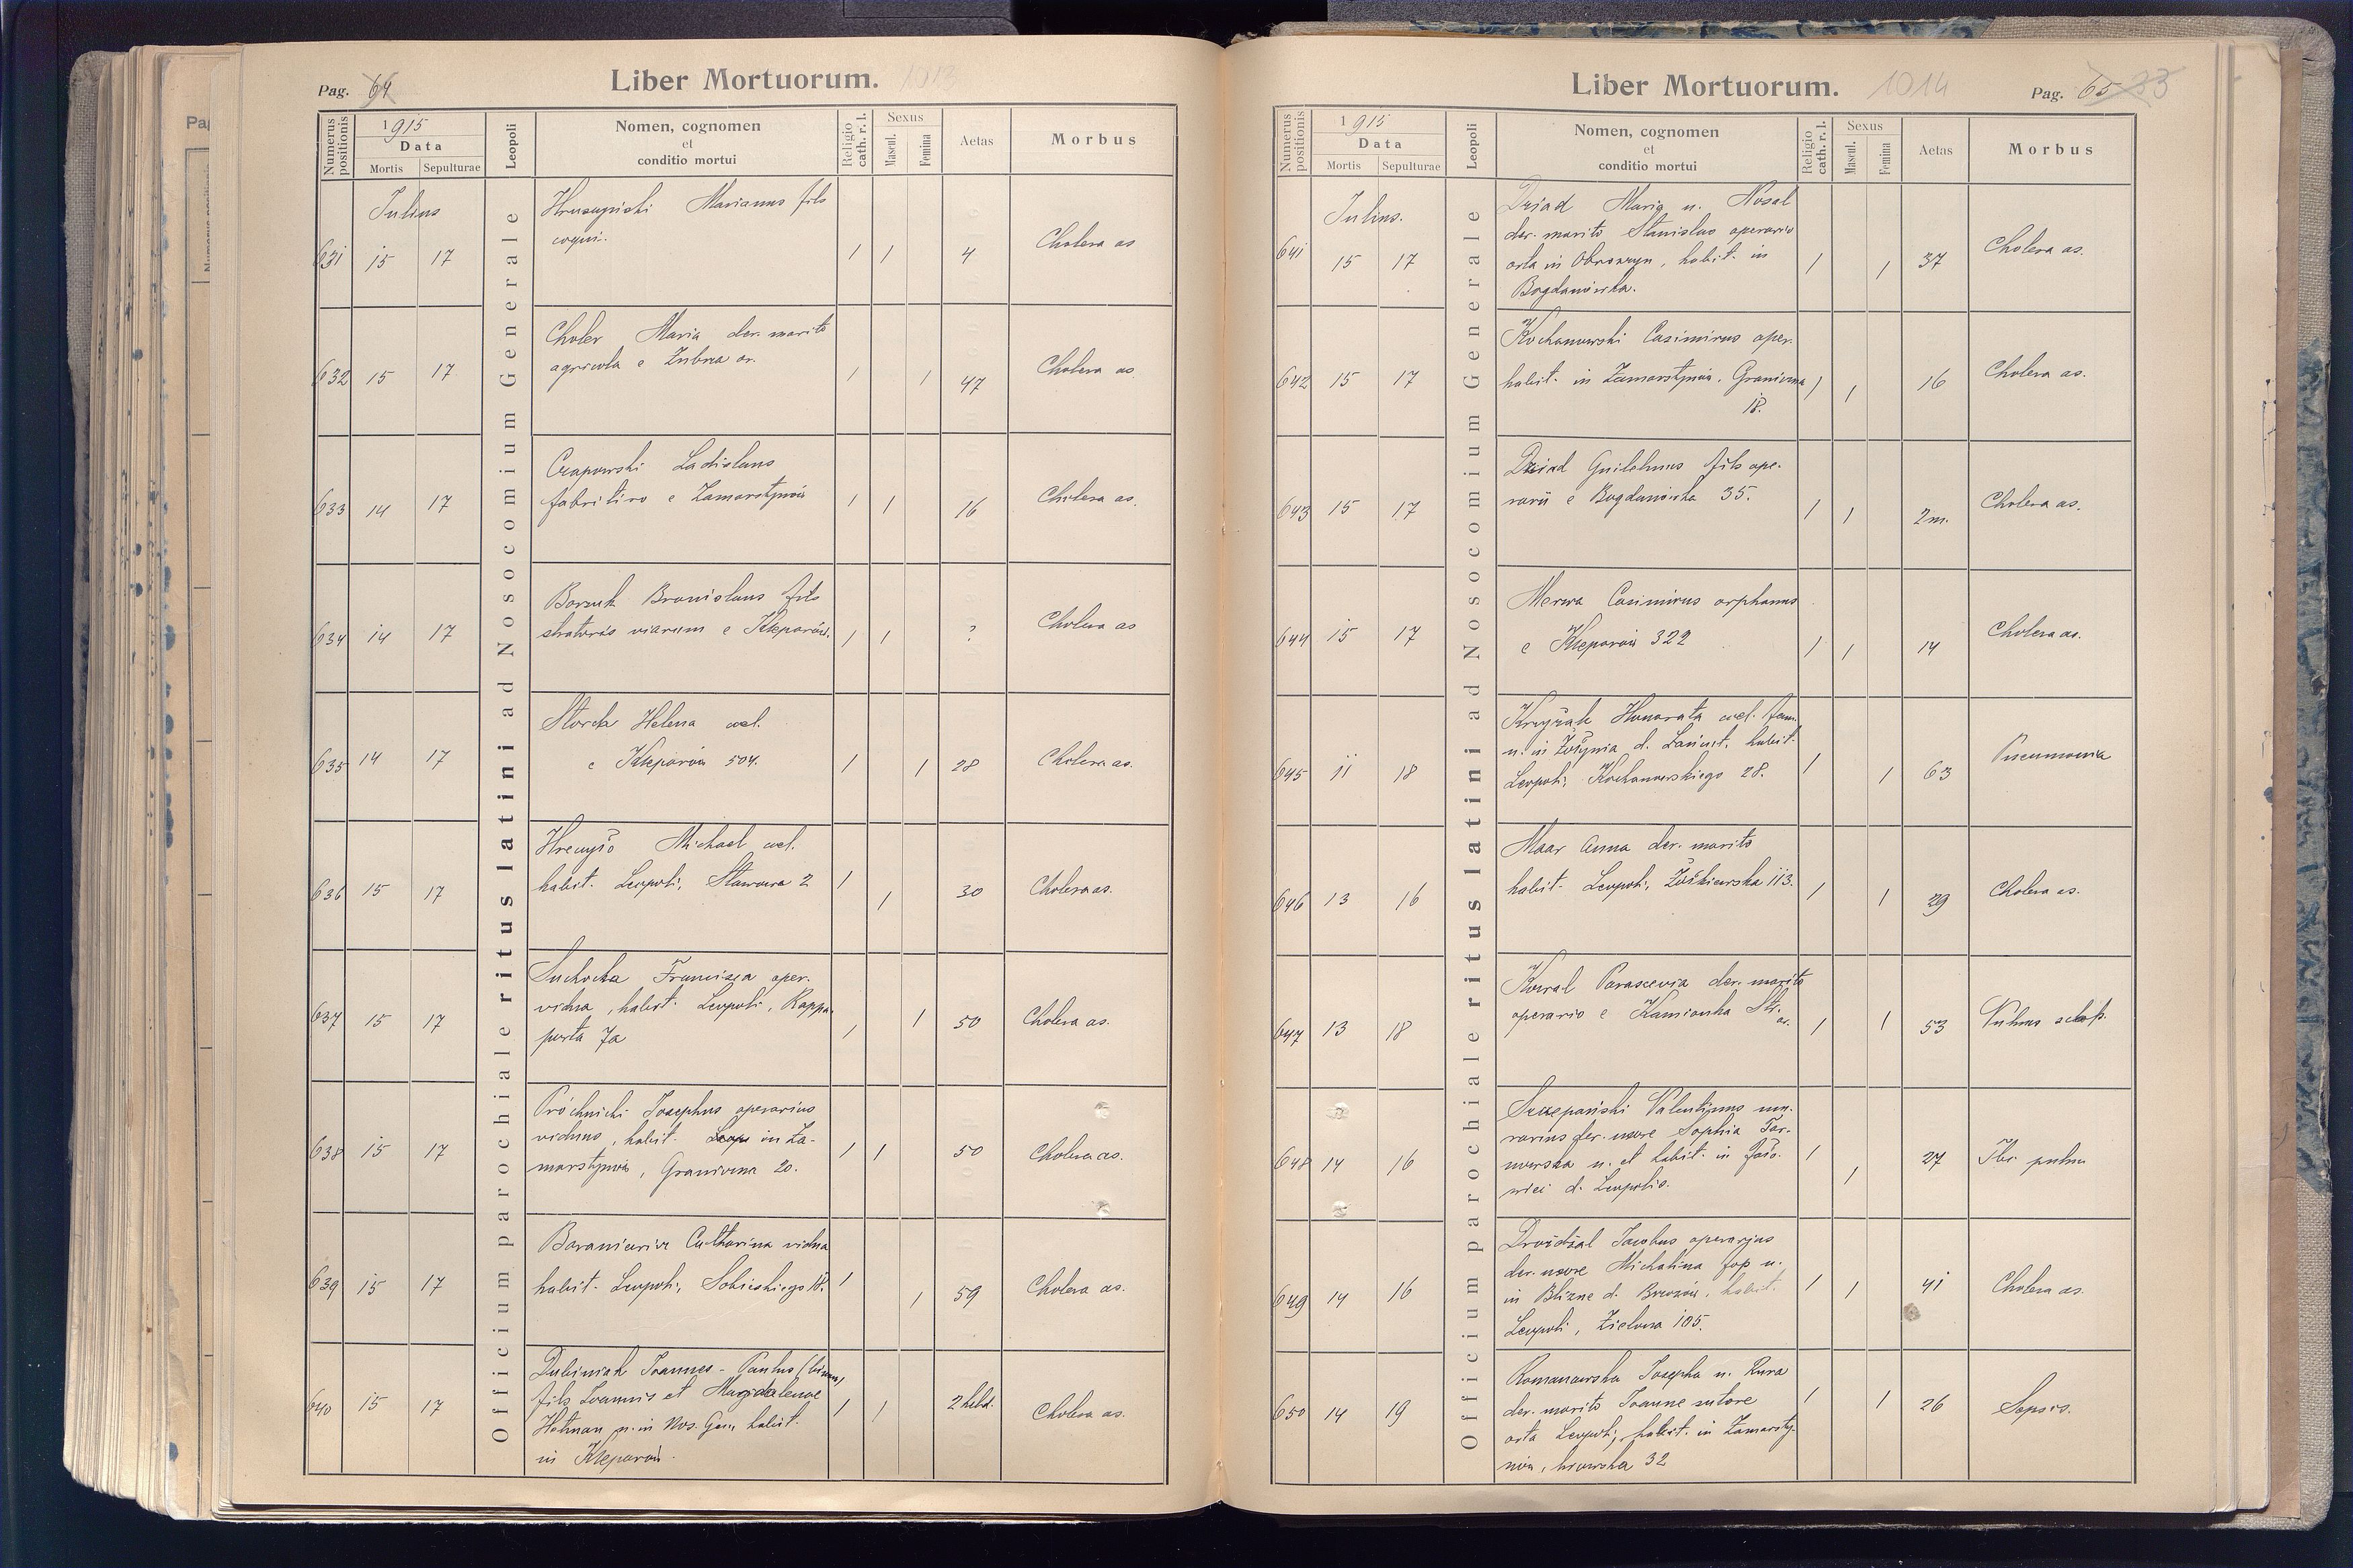 Pag. 64
Liber Mortuorum. 1013
Numerus positionis
1915
Data
Mortis Sepulturae
Leopoli
Nomen, cognomen
et
conditio mortui
Religio cath. r. l.
Sexus
Mascul. Femina
Aetas
Morbus
Officium parochiale ritus latini ad Nosocomium Generale
Julius
Marianus fils
631 15 17 1 1 4 Cholera as
Choler Maria der. marito
agricola e Zubrza or.
632 15 17 1 1 47 Cholera as
Czapowski Ladislaus
e Zamarstynów
633 14 17 1 1 16 Cholera as.
Bronislaus fils
stratoris viarum e Kleparów.
634 14 17 1 1 ? Cholera as
Storch Helena cael.
e Kleparów 504.
635 14 17 1 1 28 Cholera as.
Michael cael.
habit. Leopoli, Stawowa 2
636 15 17 1 1 30 Cholera as.
Suchocka Francisca oper.
vidua, habit. Leopoli, Rappa-
porta 7a
637 15 17 1 1 50 Cholera as.
Próchnicki Josephus operarius
viduus, habit. Leop in Za-
marstynów, Graniczna 20.
638 15 17 1 1 50 Cholera as.
Catharina vidua
habit. Leopoli, Sobieskiego 18.
639 15 17 1 1 59 Cholera as.
Dubiniak Joannes-Paulus
fils Joannis et Magdalenae
Hetman n. in Nos. Gen. habit.
in Kleparów.
640 15 17 1 1 2 hebd. Cholera as.
Liber Mortuorum. 1014
Pag. 65 33
Numerus positionis
1915
Data
Mortis Sepulturae
Leopoli
Nomen, cognomen
et
conditio mortui
Religio cath. r. l.
Sexus
Mascul. Femina
Aetas
Morbus
Officium parochiale ritus latini ad Nosocomium Generale
Julius.
Dziad Maria n. Nosal
der. marito Stanislao operario
orta in Obroszyn, habit. in
Bogdanówka.
641 15 17 1 1 37 Cholera as.
Kochanowski Casimirus oper.
habit. in Zamarstynów, Graniczna
18.
642 15 17 1 1 16 Cholera as.
Dziad Guilelmus fils ope-
rarii e Bogdanówka 35.
643 15 17 1 1 2 m. Cholera as.
Casimirus orphanus
e Kleparów 322
644 15 17 1 1 14 Cholera as.
Honorata cael. fam.
n. in Żołynia d. Łańcut, habit.
Leopoli, Kochanowskiego 28.
645 11 18 1 1 63 Pneumonia
Maar Anna der. marito
habit. Leopoli, Żółkiewska 113.
646 13 16 1 1 29 Cholera as.
Kowal Parascevia der. marito
operario e Kamionka Str.
or.
647 13 18 1 1 53 Vulnus sclop.
Szczepański Valentinus mu-
rarius der. uxore Sophia Tar-
nawska n. et habit. in
d. Leopolis.
648 14 16 1 1 27 Tbc. pulm
Jacobus operarius
der. uxore Michalina Fop n.
in Blizne d. Brzozów, habit.
Leopoli, Zielona 105.
649 14 16 1 1 41 Cholera as.
Romanowska Josepha n. Kura
der. marito Joanne sutore
orta Leopoli, habit. in Zamarsty-
nów, Lwowska 32
650 14 19 1 1 26 Sepsis.